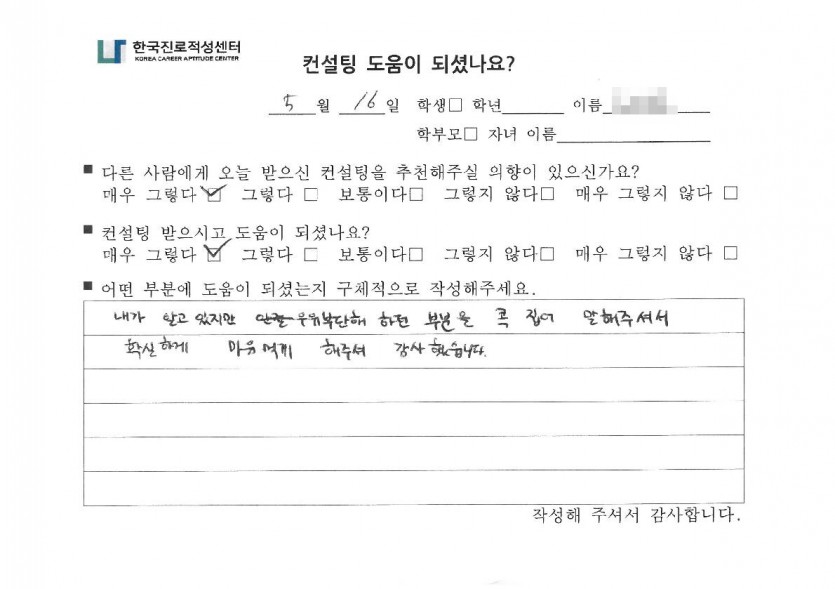 한국진로적성센터
KOREA CAREER APTITUDE CENTER
컨설팅 도움이 되셨나요?
5 월 16 일 학생□ 학년 이름
학부모□ 자녀 이름
■ 다른 사람에게 오늘 받으신 컨설팅을 추천해주실 의향이 있으신가요?
매우 그렇다☑ 그렇다 □ 보통이다□ 그렇지 않다□ 매우 그렇지 않다 □
■ 컨설팅 받으시고 도움이 되셨나요?
매우 그렇다 ☑ 그렇다 □ 보통이다□ 그렇지 않다□ 매우 그렇지 않다 □
■ 어떤 부분에 도움이 되셨는지 구체적으로 작성해주세요.
내가 알고 있지만 우유부단해 하던 부분을 콕 집어 말해주셔서
확실하게 마음먹게 해주셔 감사했습니다.
작성해 주셔서 감사합니다.